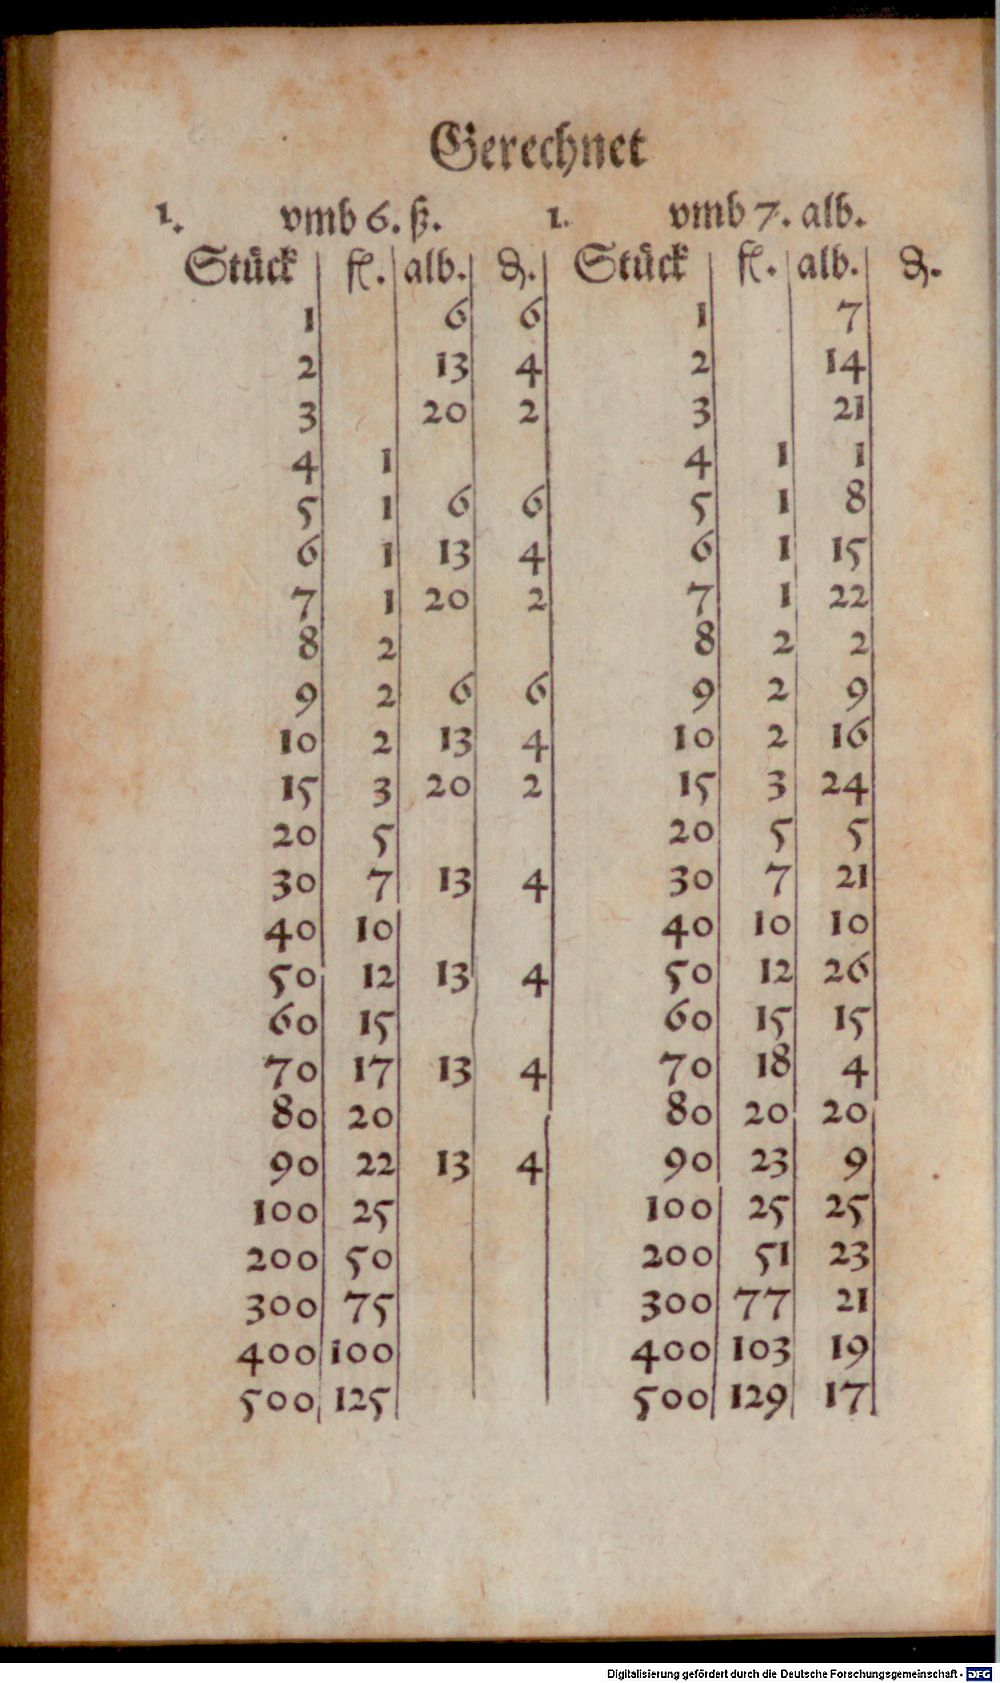 Gerechnet
1. vmb 6. ß. 1. vmb 7. alb.
Stück fl. alb. ₰. Stück fl. alb. ₰.
1 6 6 1 7
2 13 4 2 14
3 20 2 3 21
4 1 4 1 1
5 1 6 6 5 1 8
6 1 13 4 6 1 15
7 1 20 2 7 1 22
8 2 8 2 2
9 2 6 6 9 2 9
10 2 13 4 10 2 16
15 3 20 2 15 3 24
20 5 20 5 5
30 7 13 4 30 7 21
40 10 40 10 10
50 12 13 4 50 12 26
60 15 60 15 15
70 17 13 4 70 18 4
80 20 80 20 20
90 22 13 4 90 23 9
100 25 100 25 25
200 50 200 51 23
300 75 300 77 21
400 100 400 103 19
500 125 500 129 17
Digitalisierung gefördert durch die Deutsche Forschungsgemeinschaft - DFG